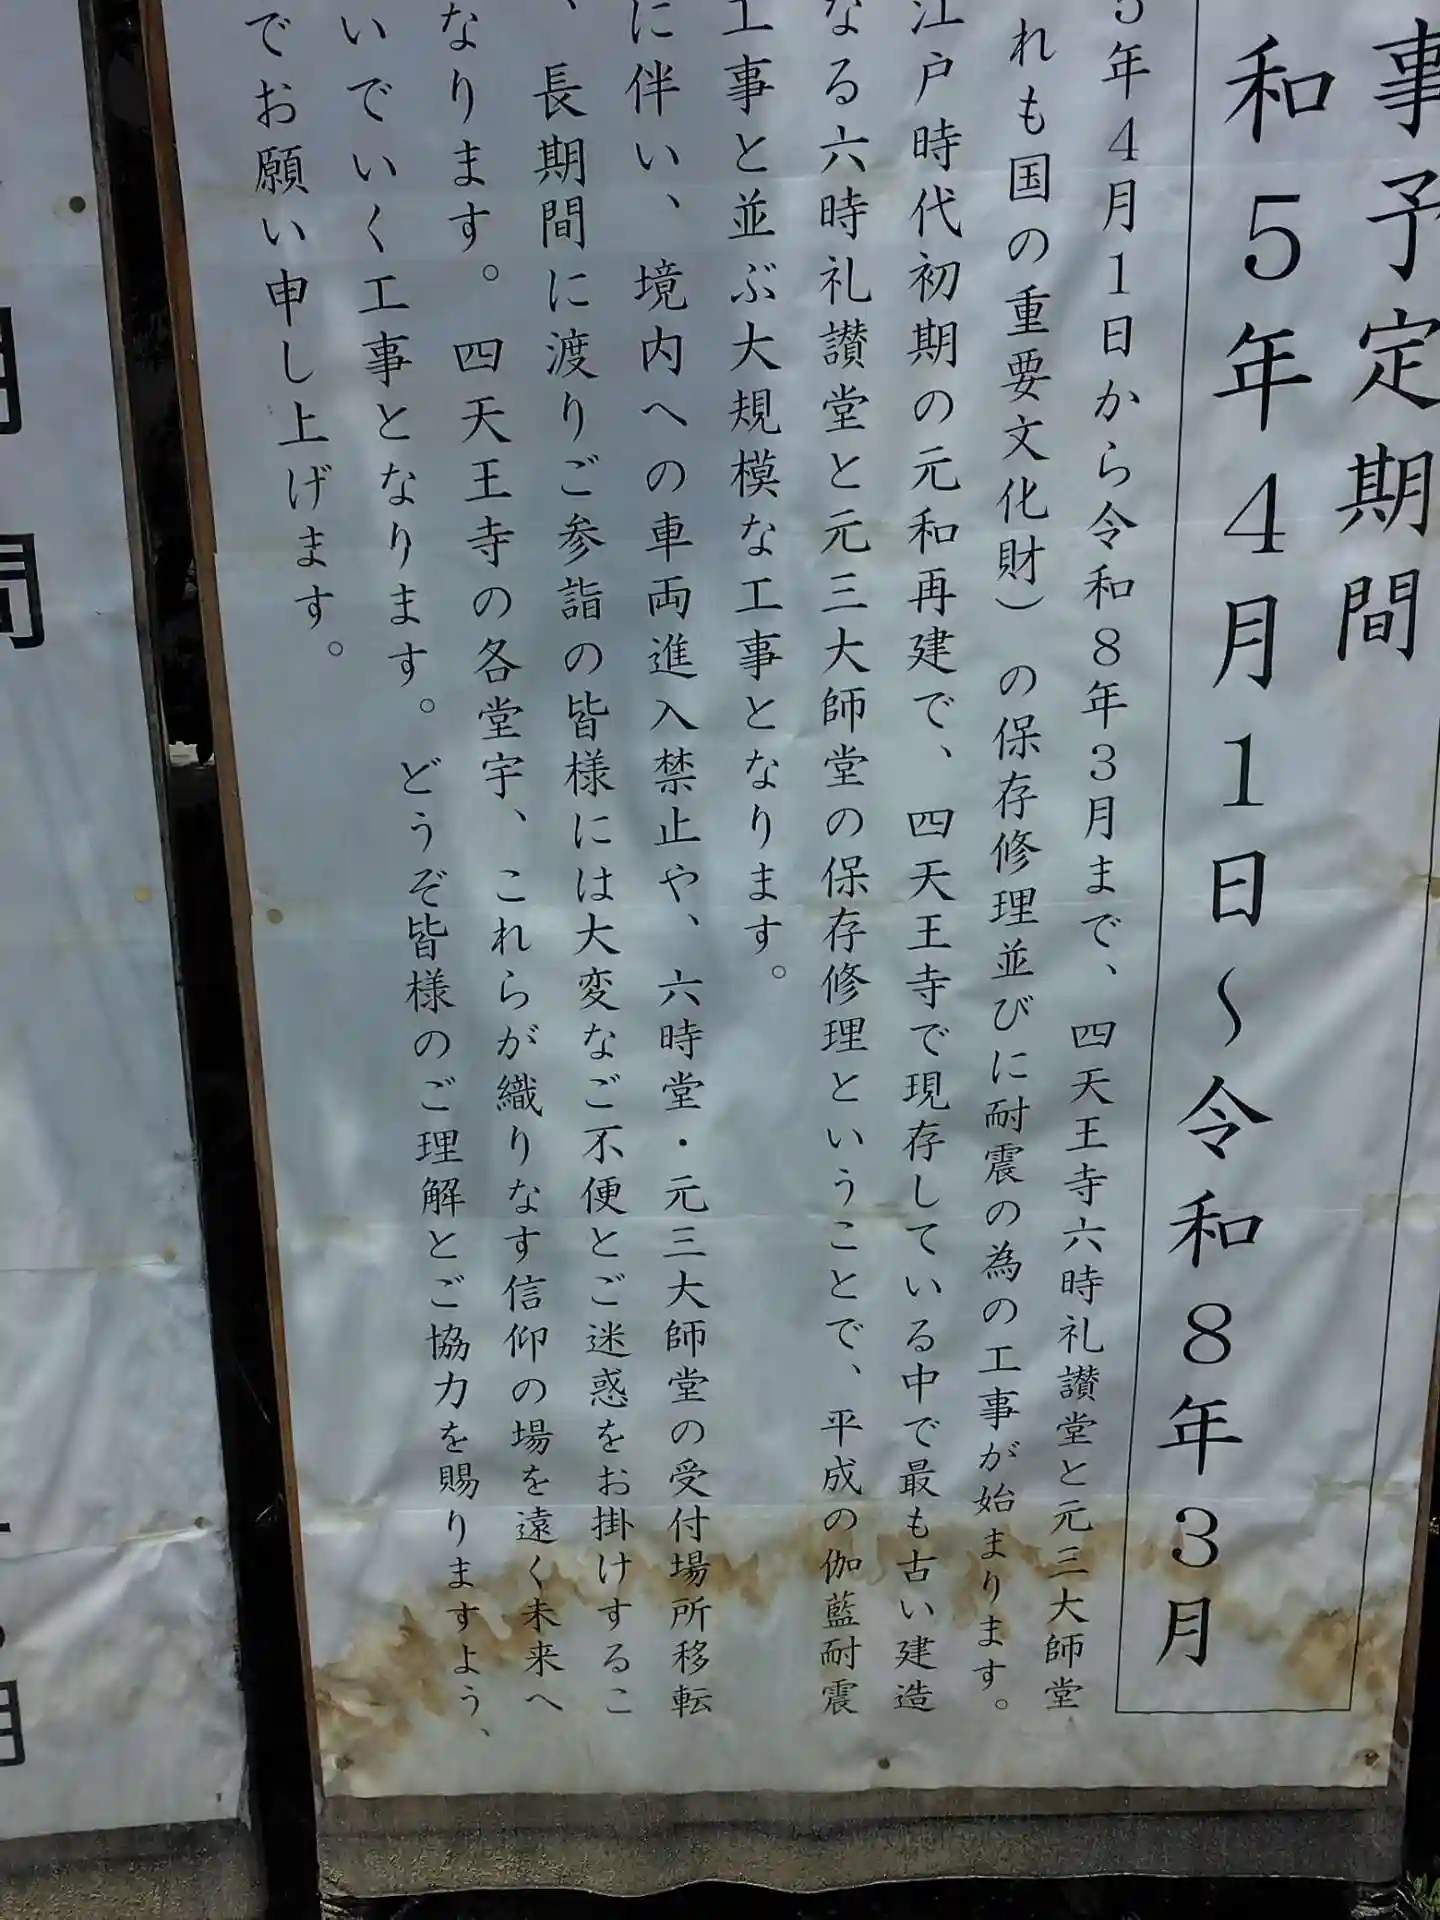 事予定期間
和5年4月1日～令和8年3月
5年4月1日から令和8年3月まで、四天王寺六時礼讃堂と元三大師堂
れも国の重要文化財）の保存修理並びに耐震の為の工事が始まります。
江戸時代初期の元和再建で、四天王寺で現存している中で最も古い建造
なる六時礼讃堂と元三大師堂の保存修理ということで、平成の伽藍耐震
工事と並ぶ大規模な工事となります。
に伴い、境内への車両進入禁止や、六時堂・元三大師堂の受付場所移転
、長期間に渡りご参詣の皆様には大変なご不便とご迷惑をお掛けするこ
なります。四天王寺の各堂宇、これらが織りなす信仰の場を遠く未来へ
いでいく工事となります。どうぞ皆様のご理解とご協力を賜りますよう、
でお願い申し上げます。
間